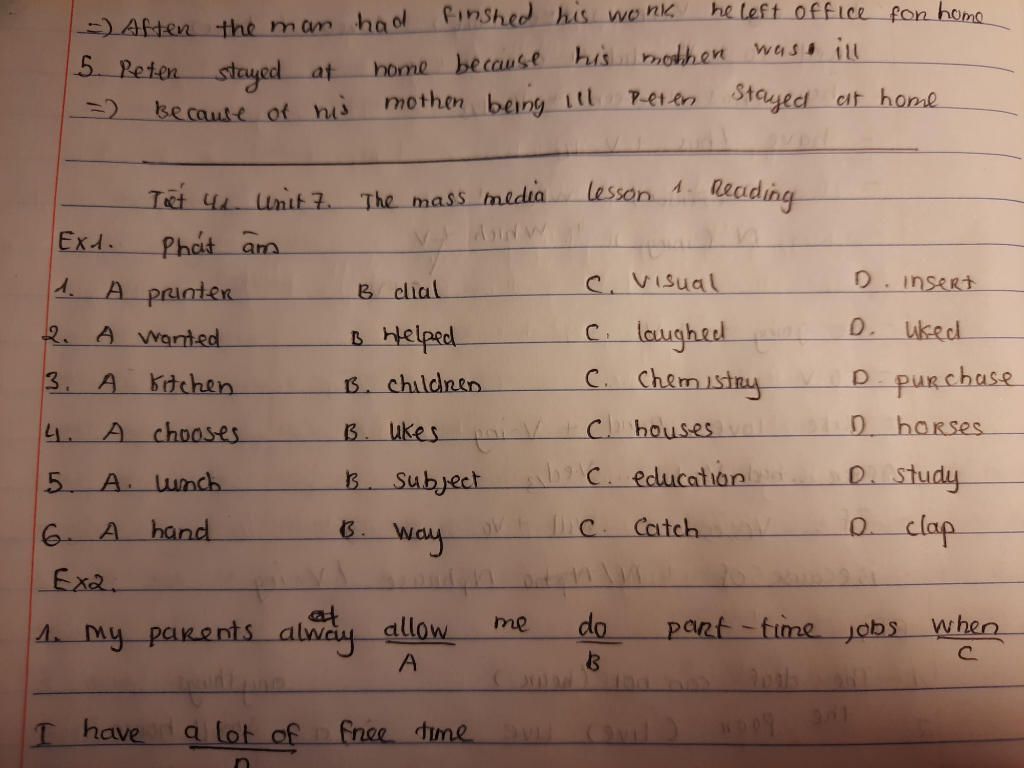 => After the man had finshed his work he left office for home
5. Peter stayed at home because his mother was ill
=> Because of his mother being ill Peter stayed at home
Tiết 41. Unit 7. The mass media lesson 1. Reading
Ex1. Phát âm
1. A printer B dial C. visual D. insert
2. A wanted B Helped C. laughed D. liked
3. A kitchen B. children C. Chemistry D. purchase
4. A chooses B. likes C. houses D. horses
5. A. lunch B. subject C. education D. study
6. A hand B. way C. Catch D. clap
Ex2.
1. My parents alway allow me do part-time jobs when
A B C
I have a lot of free time
D